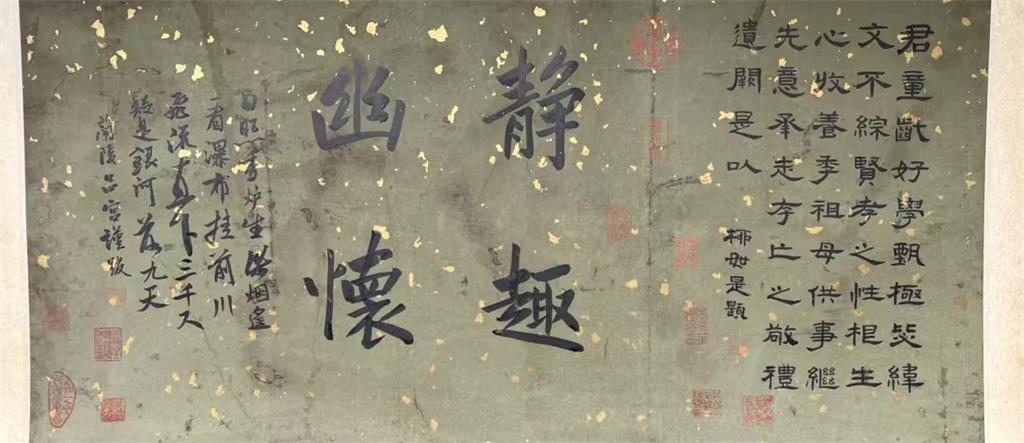 君童齔好學甄極毖緯
文不綜賢孝之性根生
心收養季祖母供事繼
先意承志存亡之敬禮
遺闕是以
柳如是題
静趣
幽懷
日照香炉生紫烟遙
看瀑布挂前川
飛流直下三千尺
疑是銀河落九天
蘭陵呂宮謹跋